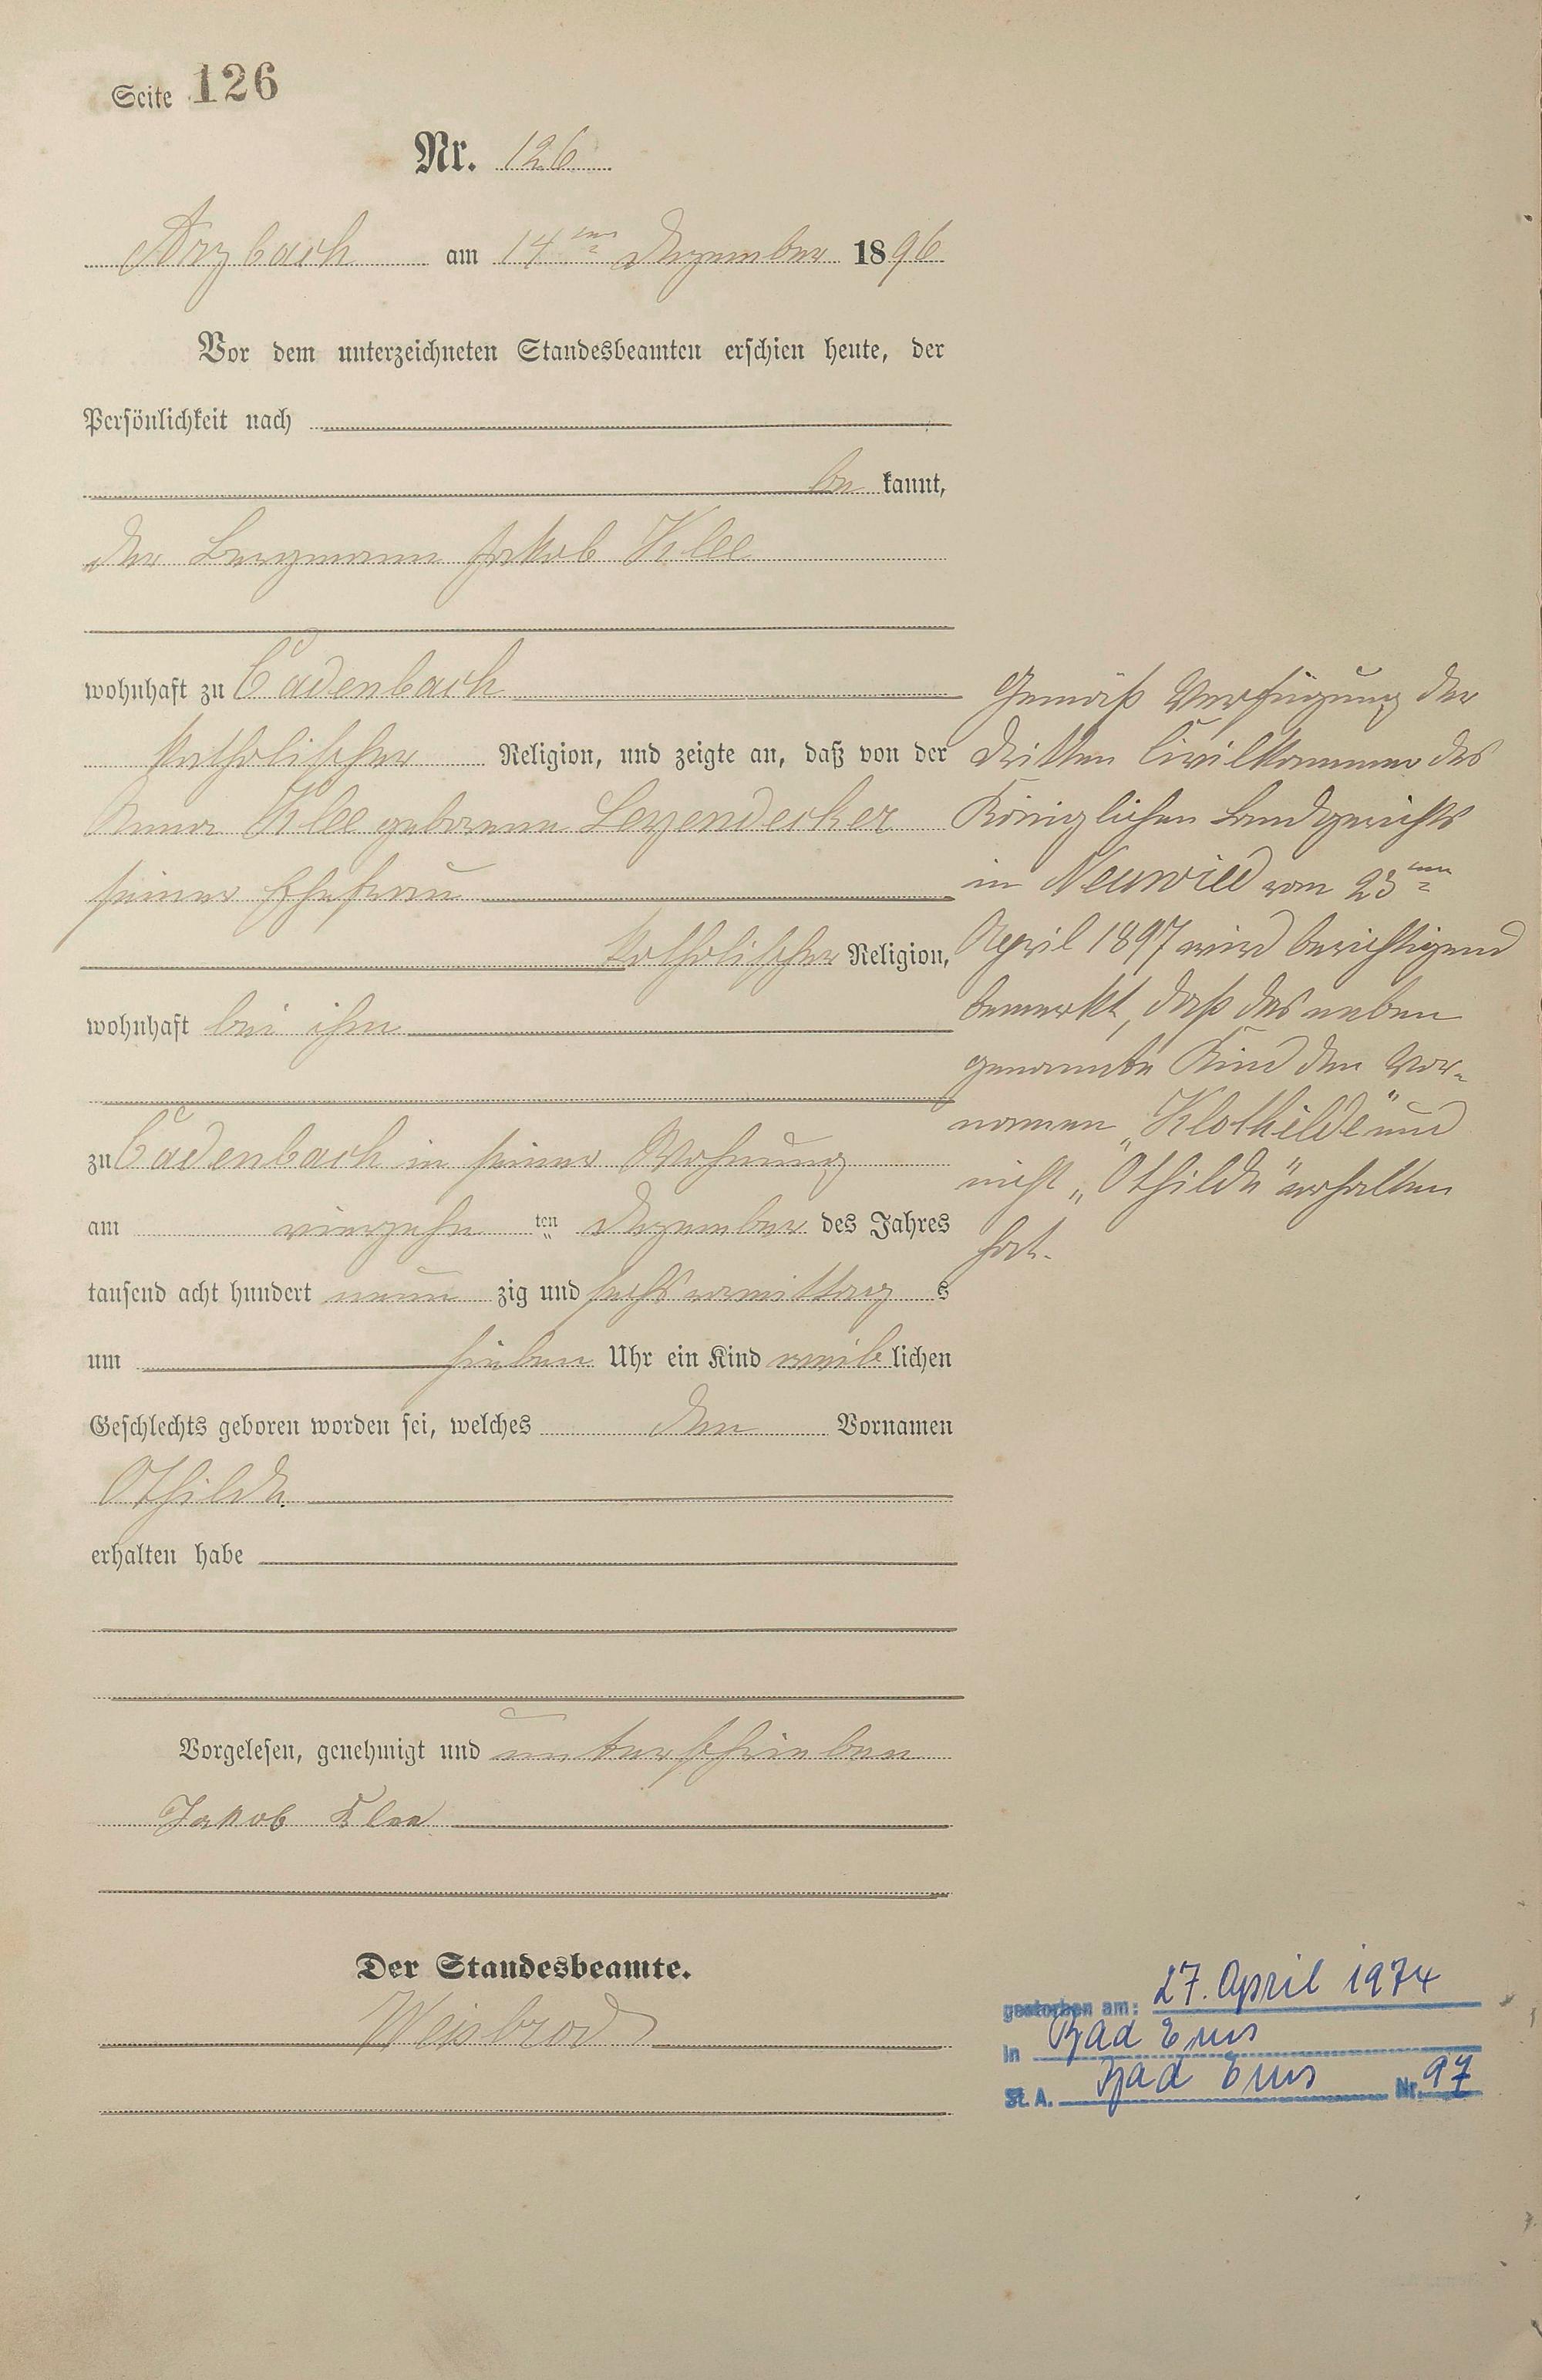 Seite 126
Nr. 126
Arzbach am 14ten Dezember 1896
Vor dem unterzeichneten Standesbeamten erschien heute, der
Persönlichkeit nach
be kannt,
der Bergmann Jakob Klee
wohnhaft zu Cadenbach
katholischer Religion, und zeigte an, daß von der
Anna Klee geborenen Leyendecker
seiner Ehefrau
katholischer Religion,
wohnhaft bei ihm
zu Cadenbach in seiner Wohnung
am vierzehn ten Dezember des Jahres
tausend acht hundert neun zig und sechs vormittag s
um sieben Uhr ein Kind weib lichen
Geschlechts geboren worden sei, welches den Vornamen
Othilde
erhalten habe
Vorgelesen, genehmigt und unterschrieben
Jakob Klee
Der Standesbeamte.
Weisbrod
Gemäß Verfügung der
dritten Civilkammer des
Königlichen Landgerichts
in Neuwied vom 23ten
April 1897 wird berichtigend
bemerkt, daß das neben
genannte Kind den Vor-
namen „Klothilde" und
nicht „Othilde" erhalten
hat.
gestorben am: 27. April 1974
in Bad Ems
St. A. Bad Ems Nr. 97